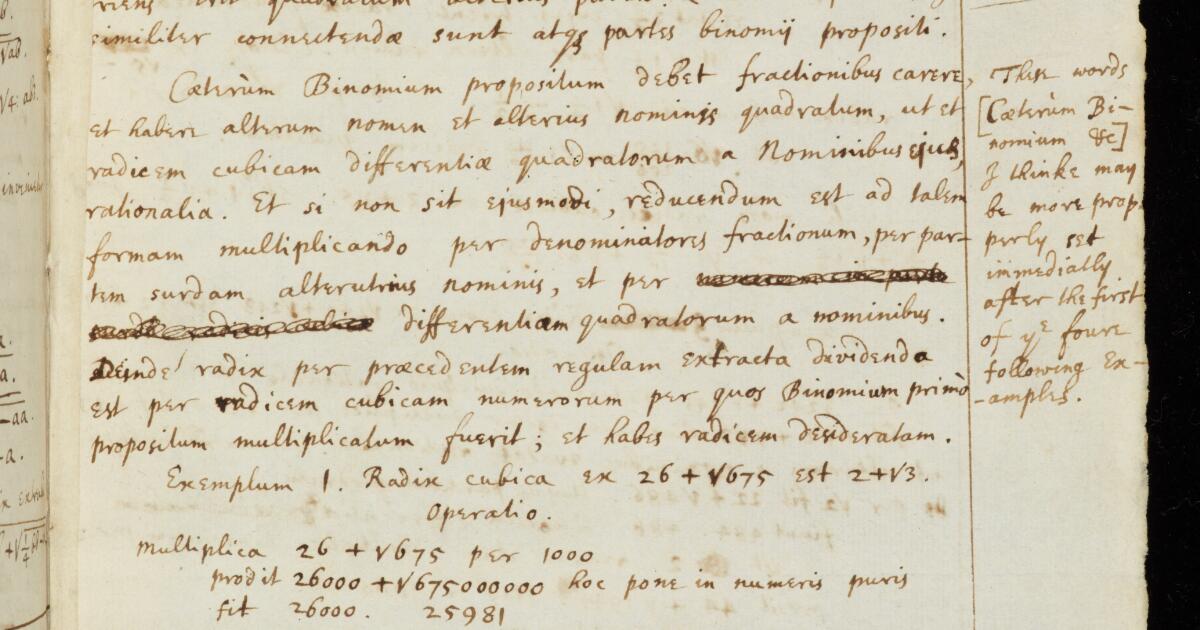 similiter connectendæ sunt atqs partes binomij propositi.
Cæterùm Binomium propositum debet fractionibus carere,
et habere alterum nomen et alterius nominis quadratum, ut et
radicem cubicam differentiæ quadratorum a Nominibus ejus,
rationalia. Et si non sit ejusmodi, reducendum est ad talem
formam multiplicando per denominatores fractionum, per par-
tem surdam alterutrius nominis, et per
differentiam quadratorum a nominibus.
Deinde radix per præcedentem regulam extracta dividenda
est per radicem cubicam numerorum per quos Binomium primò
propositum multiplicatum fuerit; et habes radicem desideratam.
Exemplum 1. Radix cubica ex 26 + √675 est 2+√3.
Operatio.
Multiplica 26 + √675 per 1000
prodit 26000 + √675000000 hoc pone in numeris puris
fit 26000. 25981
These words
[Cæterùm Bi-
nomium &c]
I thinke may
be more prop
perly set
immediatly
after the first
of yᵉ foure
following Ex-
-amples.